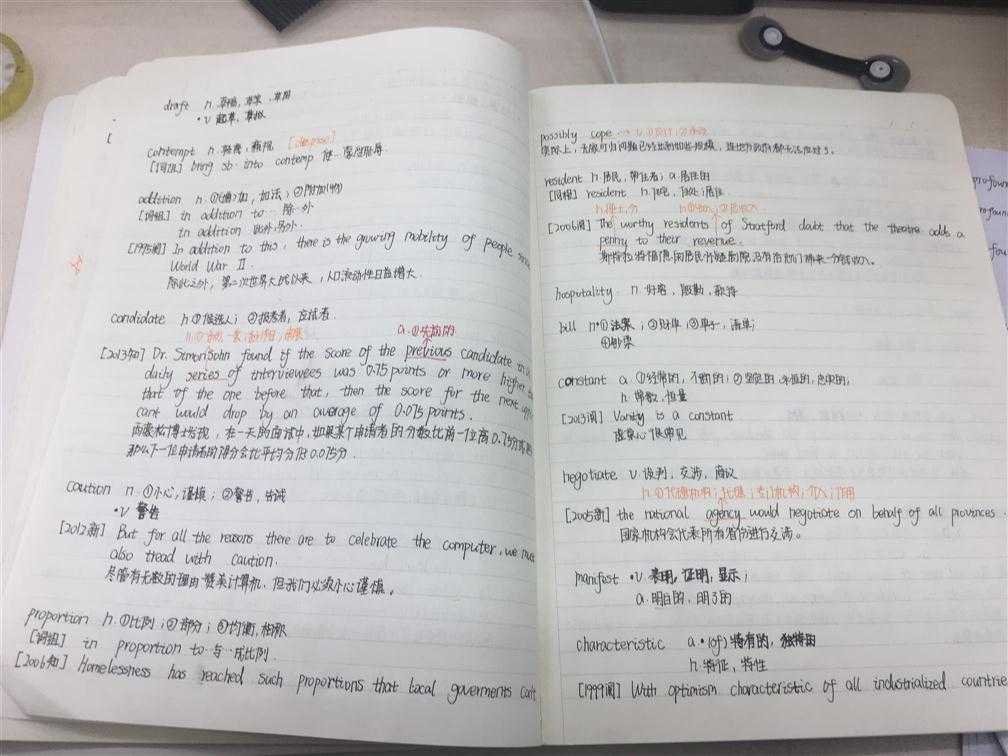 draft n. 草稿, 草案, 草图
·v 起草, 草拟
[
contempt n. 轻蔑, 藐视
[词组] bring sb. into contemp 使…蒙受耻辱
addition n. ①增加, 加法; ②附加(物)
[词组] in addition to… 除…外
in addition 此外,另外.
[1995阅] In addition to this, there is the growing mobility of people since
World War II.
除此之外, 第二次世界大战以来, 人口流动性日益增大.
candidate n ①候选人; ②报考者, 应试者
a.①先前的
[2013知] Dr. Simonsohn found if the score of the previous candidate in a
daily series of interviewees was 0.75 points or more higher
that of the one before that, then the score for the next
cant would drop by an average of 0.075 points.
西蒙松博士发现, 在一天的面试中,如果某个申请者的分数比前一位高0.75分或
那么下一位申请者的得分会比平均分低0.075分.
caution n. ①小心, 谨慎; ②警告, 告诫
·v 警告
[2012新] But for all the reasons there are to celebrate the computer, we must
also tread with caution.
尽管有无数的理由赞美计算机, 但我们必须小心谨慎。
proportion n. ①比例; ②部分; ③均衡, 相称
[词组] in proportion to… 与…成比例.
[2006知] Homelessness has reached such proportions that local goverments can't
possibly cope
实际上, 无家可归问题已经出现如此规模, 当地方政府都无法应对了.
resident n. 居民, 常住者; a. 居住的
[同根] resident n.
[2006阅] The worthy residents of Stratford doubt that the theatre adds a
penny to their revenue.
hospitality n. 好客, 殷勤, 款待
bill n·①法案; ②账单; ③单子, 清单;
④钞票
constant a ①经常的, 不断的; ②坚定的 永恒的, 忠实的,
n. 常数, 恒量
[2013阅] Vanity is a constant
虚荣心很常见
negotiate v 谈判, 交涉, 商议
n.①代理机构; 代理; 专门机构; 介入; 作用
[2005新] the national agency would negotiate on behalf of all provinces.
国家机构会代表所有省份进行交涉。
manifest ·v 表明, 证明, 显示;
a. 明白的, 明了的
characteristic a·(of) 特有的, 独特的
n. 特征, 特性
[1999阅] With optimism characteristic of all industrialized countrie